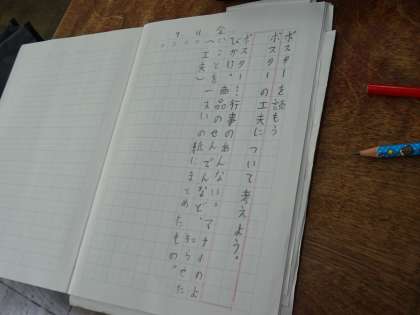 ポスターを読もう
ポスターの工夫について考えよう。
ポスター…行事のあんない。マナーのよ
びかけ。商品のせんでんなど、知らせた
いことを一まいの紙にまとめたもの。
(工夫)